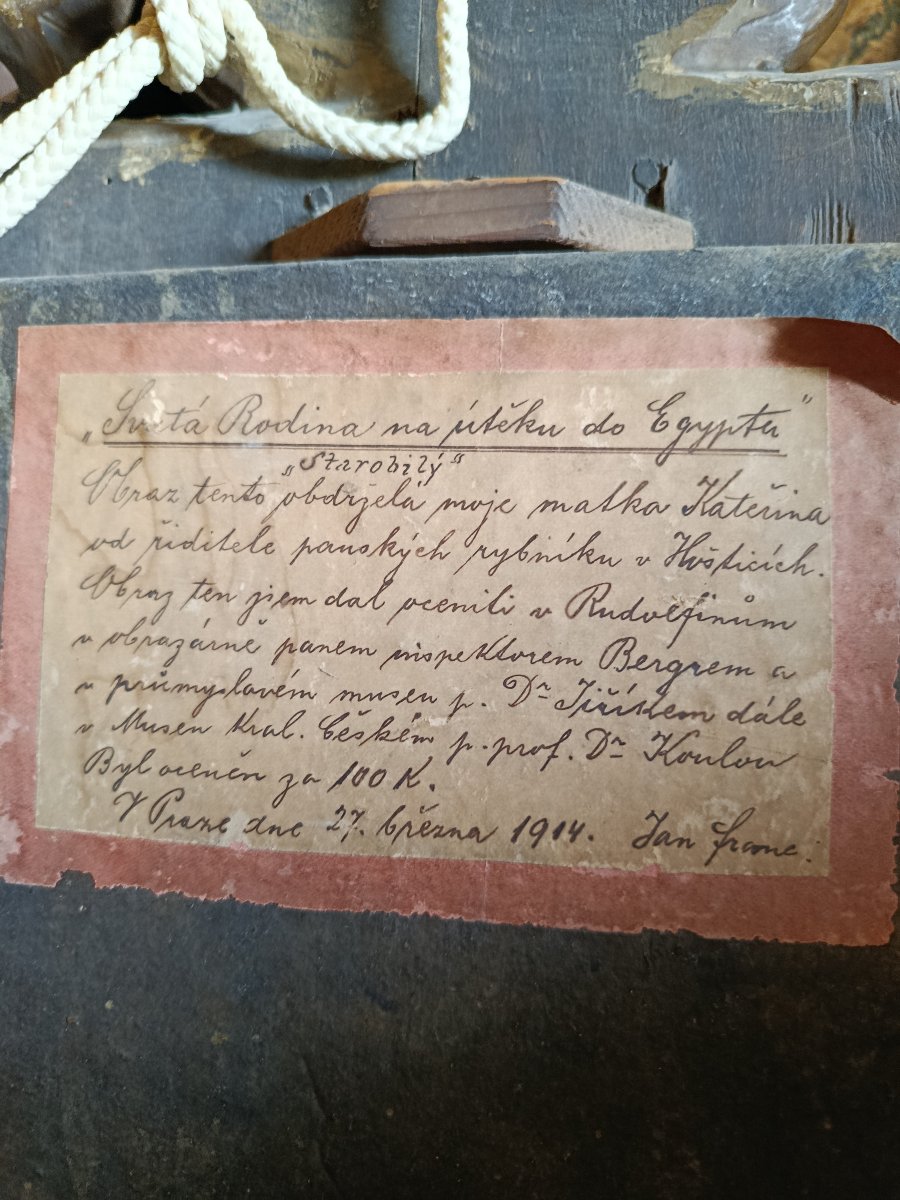 „Svatá Rodina na útěku do Egypta"
„Starobilý"
Obraz tento obdržela moje matka Kateřina
od řiditele panských rybníku v Hošticích.
Obraz ten jsem dal oceniti v Rudolfinům
v obrazárně panem inspektorem Bergrem a
v průmyslovém museu p. Dr Jiříkem dále
v Museu Kral. Českém p. prof. Dr Koulou
Byl oceněn za 100 K.
V Praze dne 27. března 1914. Jan Franc.